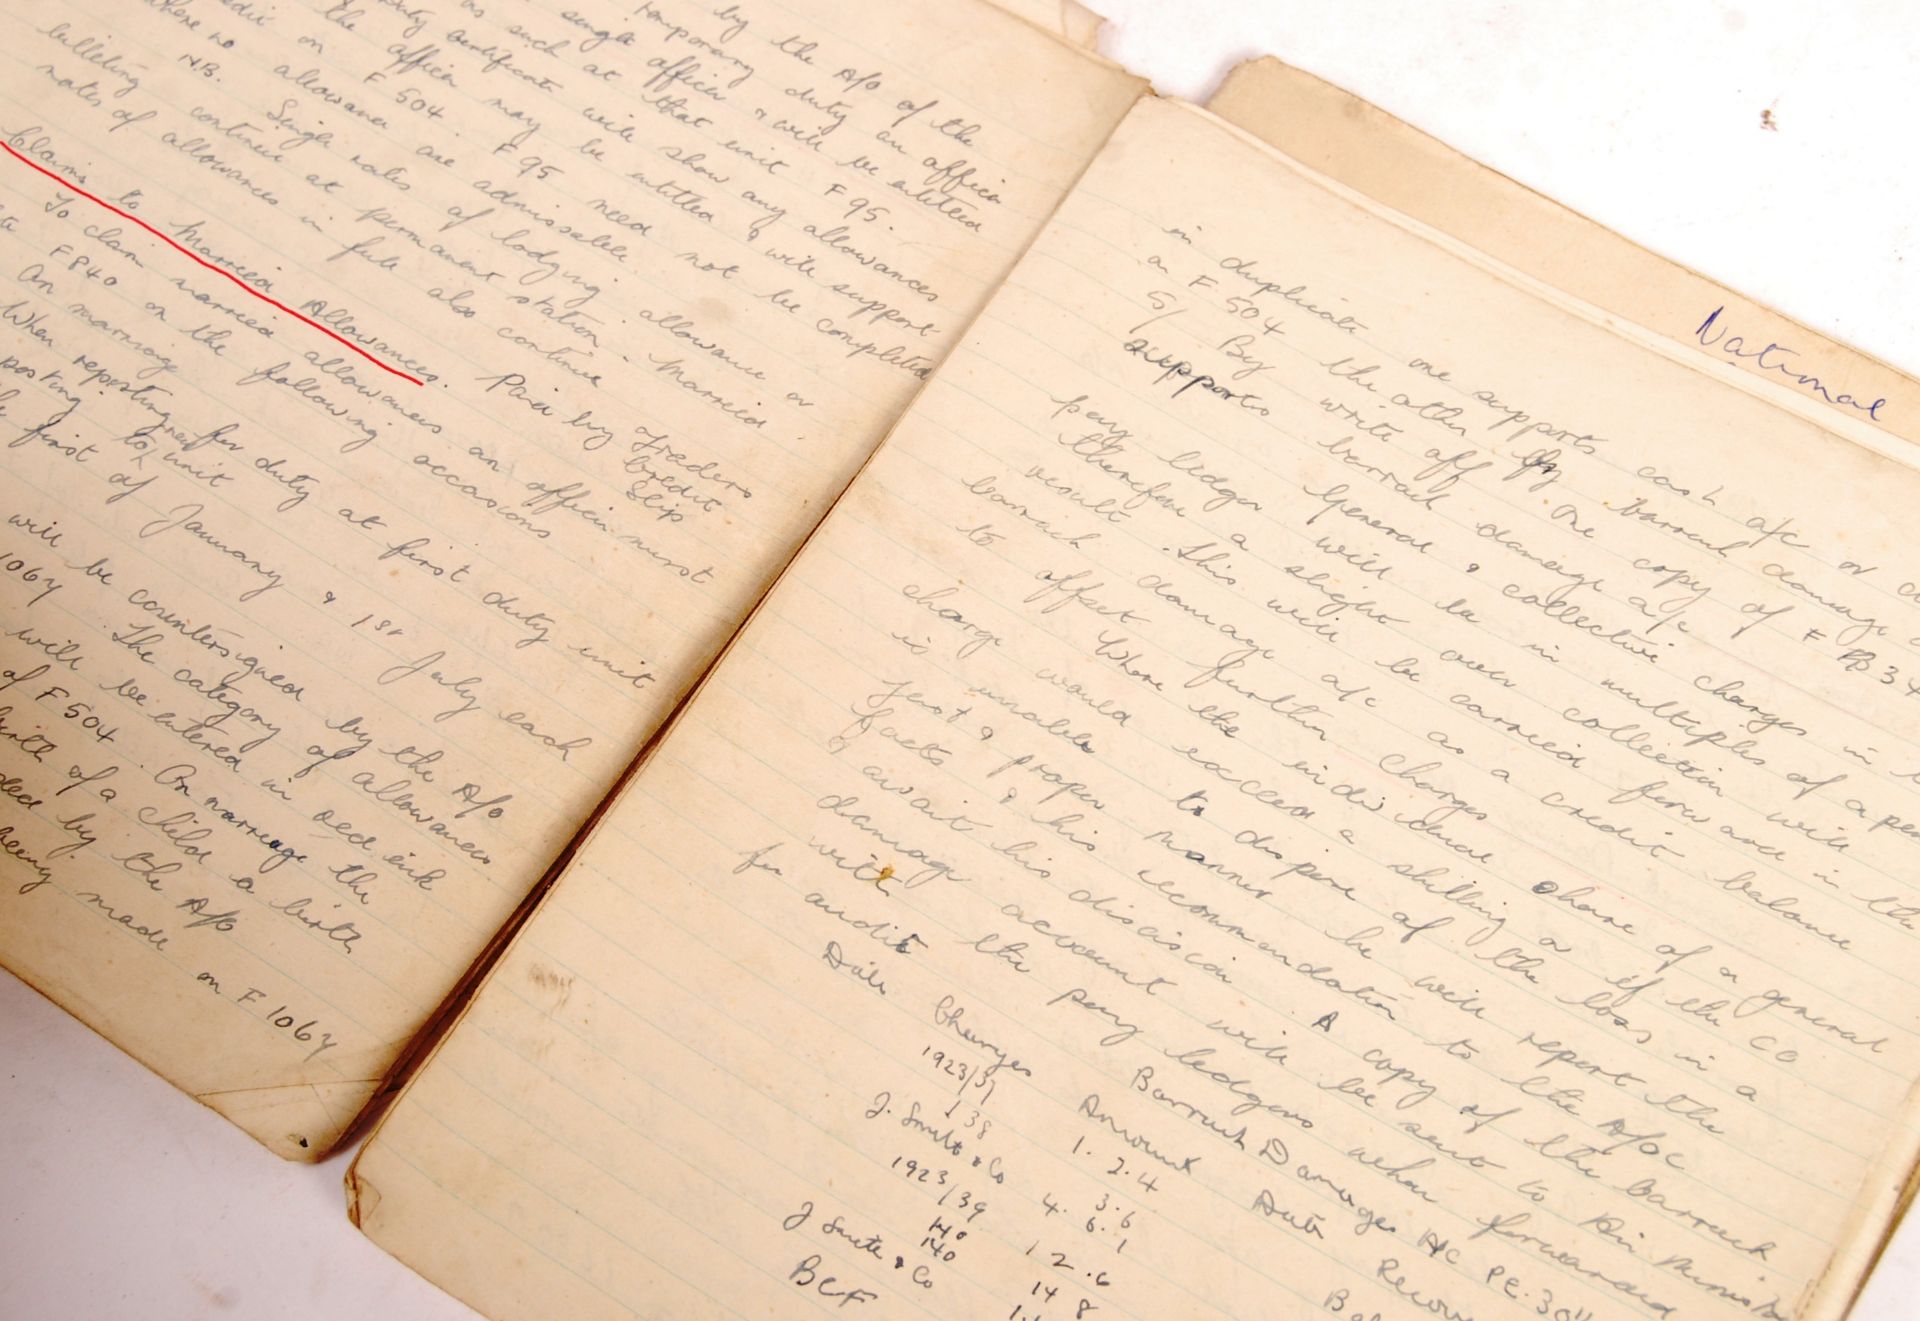 by the A/o of the
temporary duty an officer
single officer & will be entitled
as such at that unit F 95.
duty certificate will show any allowances
the officer may be entitled & will support
on F 504. F 95 need not be completed
where no allowance are admissable.
N.B. Single rates of lodging allowance or
billeting continue at permanent station. Married
rates of allowances in full also continue
Claims to Married Allowances. Paid by
Credit
Slip
To claim married allowances an officer must
F 840 on the following occasions
On marriage
When reporting for duty at first duty unit
posting to new unit
first of January & 1st July each
will be countersigned by the A/o
1067. The category of allowances
will be entered in red ink
of F 504. On marriage the
birth of a child a birth
by the A/o
being made on F 1067
National
in duplicate one supports cash a/c or
on F 504 the other by barrack damage
5/ By write off. One copy of F
supports barrack damage a/c
General & collective charges in
pay ledger will be in multiples of a
therefore a slight over collection will
result. This will be carried forward in the
barrack damage a/c as a credit balance
to offset further charges
Where the individual share of a general
charge would exceed a shilling or if the CO
is unable to dispose of the loss in a
just & proper manner he will report the
facts & his recommendation to the A/o C
& await his discision A copy of the barrack
damage account will be sent to Air
with the pay ledgers when forwarded
for audit
Barrack Damages A/C
Date Charges Amount Date
1923/37 1. 2. 4
138 3. 6
J. Smith & Co 4. 6. 1
1923/39 12. 6
140 14 8
140
J Smith & Co
BCF